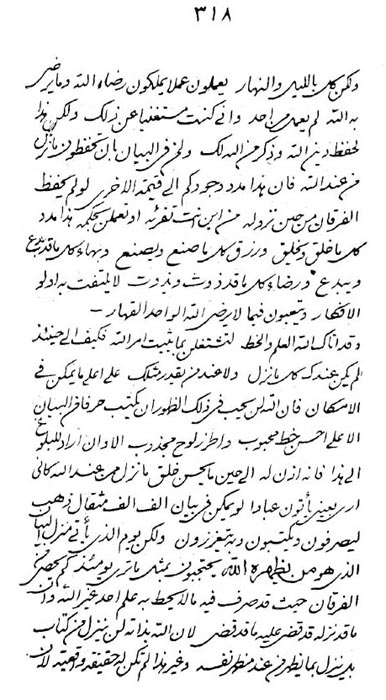 ٣١٨
ولكن كل بالليل والنهار يعملون عملا يملكون رضاء الله وما يرضى
به الله لم يعمل من احد وانى كنت مستغنيا عن ذلك ولكن هذا
لحفظ دين الله وذكر من الله لك ولمن فى البيان بان تحفظون ما نزل
من عند الله فان هذا مدد وجودكم الى قيمة الاخرى لو لم يحفظ
الفرقان من حين نزوله من اين انت تقرئه او تعملن بحكمه هذا مدد
كل ما خلق ويخلق ورزق كل ما صنع ويصنع وبهاء كل ما قد بدع
ويبدع ورضاء كل ما قد ذوت ويذوت لا يلتفت به اولو
الافكار ويتعبون فيما لا يرضى الله الواحد القهار —
وقد اتاك الله العلم والخط لتشتغلن بما يثبت امر الله فكيف الى حينئذ
لم يكن عندك كل ما نزل ولا عند من يقدر مثلك على اعلى ما يمكن فى
الامكان فان الله لن يحب فى ذلك الظهور ان يكتب حرفا فى البيان
الا على احسن خط محبوب
الى هذا فانه اذن له الى حين ما يحسن خلق ما نزل من عند الله كانى
ارى يعنى يأتون عبادا لو يمكن فى بيان الف الف مثقال ذهب
ليصرفون ويكتسبون وبه يتعززون ولكن يوم الذى يأتى منزل البيان
الذى هو من يظهره الله يحتجبون بمثل ما ترى يومئذ كم يحصى
الفرقان حيث قد صرف فيه ما لا يحط به علم احد غير الله وان
ما قد نزله قد قضى عليه ما قد قضى لان الله بذاته لن ينزل من كتاب
بل ينزل بما يظهر من عند مظهر نفسه وغير هذا لم تكن له حقيقة واقعية لان